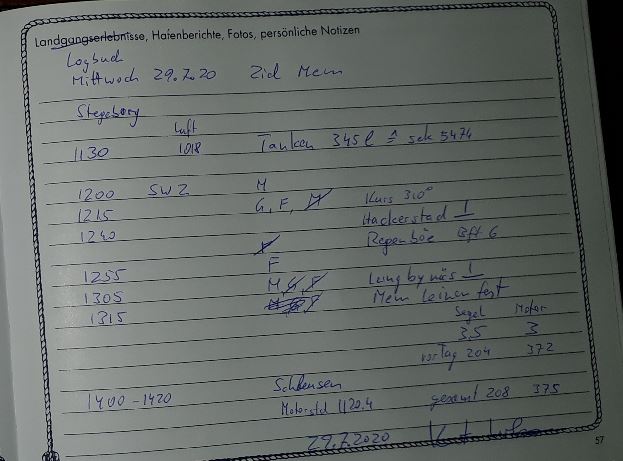 Landgangserlebnisse, Hafenberichte, Fotos, persönliche Notizen
Logbuch
Mittwoch 29.7.20 Ziel Mem
Stegeborg
Luft
1130 1018 Tanken 345 l ≙ sek 5474
1200 SW 2 M
1215 G, F, M Kurs 310°
1240 Hackerstad
Regenböe Bft 6
1255 F
1305 M Lungbynäs
1315 Mem Leinen fest
Segel Motor
3,5 3
vortag 204 372
1400 - 1420 Schleusen
Motorstd 1120,4 gesamt 208 375
29.7.2020
57